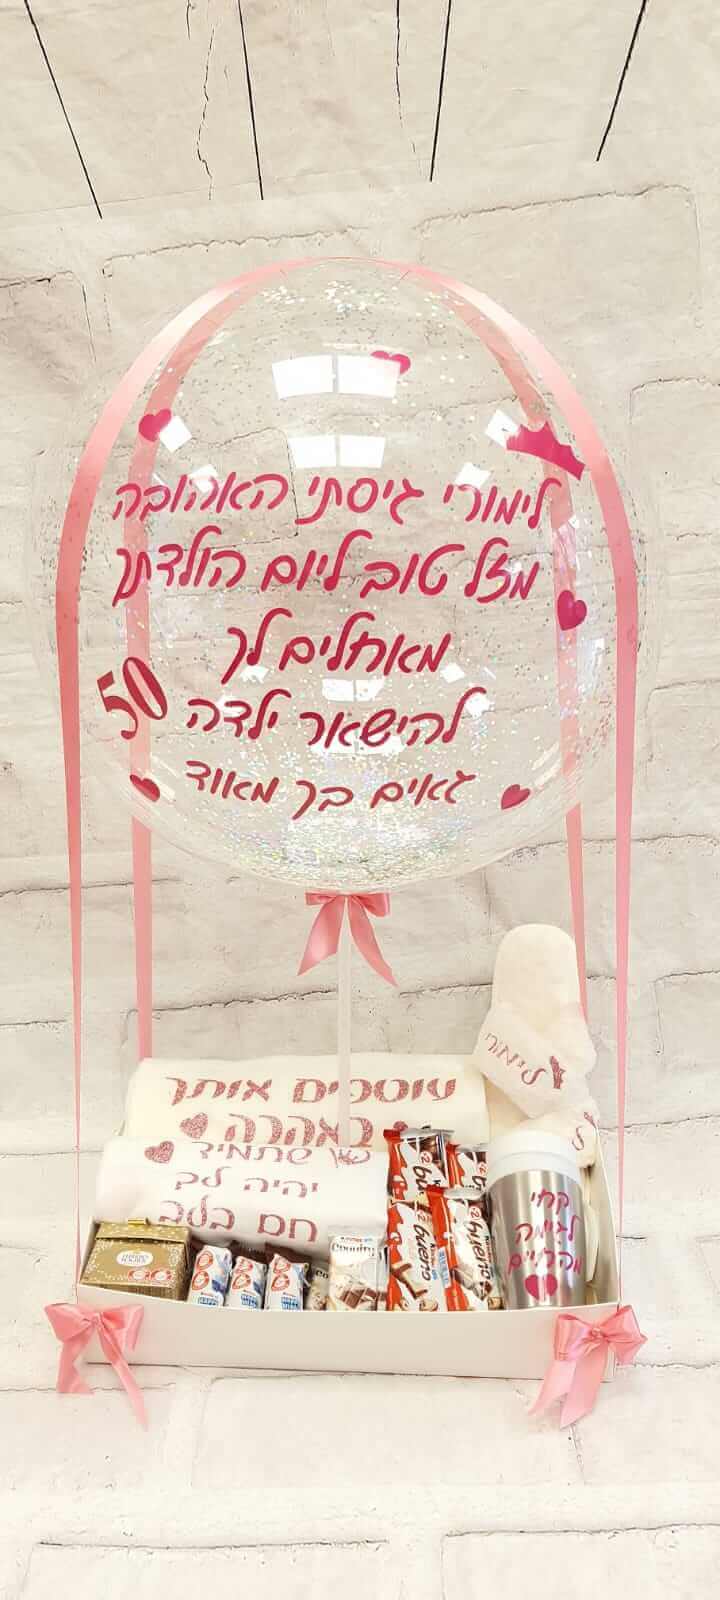 לימורי גיסתי האהובה
מזל טוב ליום הולדתך
מאחלים לך
להישאר ילדה
גאים בך מאוד
50
לימורי
עוטפים אותך
באהבה
שתמיד
יהיה לב
חם בלב
קחי
לגימה
מהחיים
bueno
bueno
Country